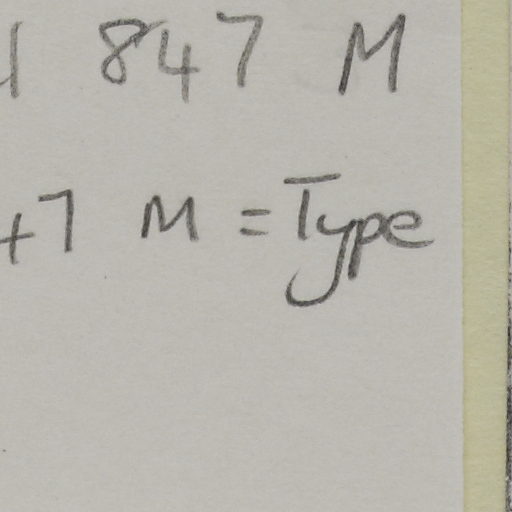 1 847 M
47 M = Type